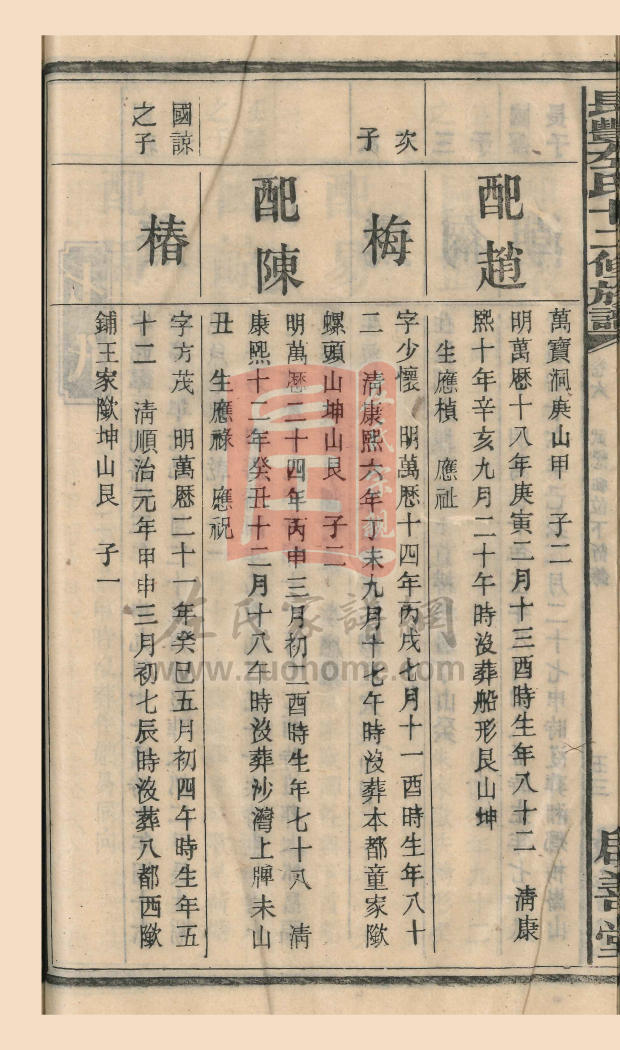 長豐左氏十二修族譜
啟善堂
萬寶洞庚山甲　子二
配趙
明萬暦十八年庚寅二月十三酉時生年八十二　清康
熙十年辛亥九月二十午時沒葬船形艮山坤
生應楨　應祉
次子
梅
字少懷　明萬暦十四年丙戌七月十一酉時生年八十
二　清康熙六年丁未九月十七午時沒葬本都童家陂
螺頭山坤山艮　子二
配陳
明萬暦二十四年丙申三月初二酉時生年七十八　清
康熙十二年癸丑十二月十八午時沒葬沙灣上牌未山
丑　生應祿　應祝
國諒之子
椿
字方茂　明萬暦二十一年癸巳五月初四午時生年五
十二　清順治元年甲申三月初七辰時沒葬八都西
鋪王家坤山艮　子一
左氏家譜網
www.zuohome.com